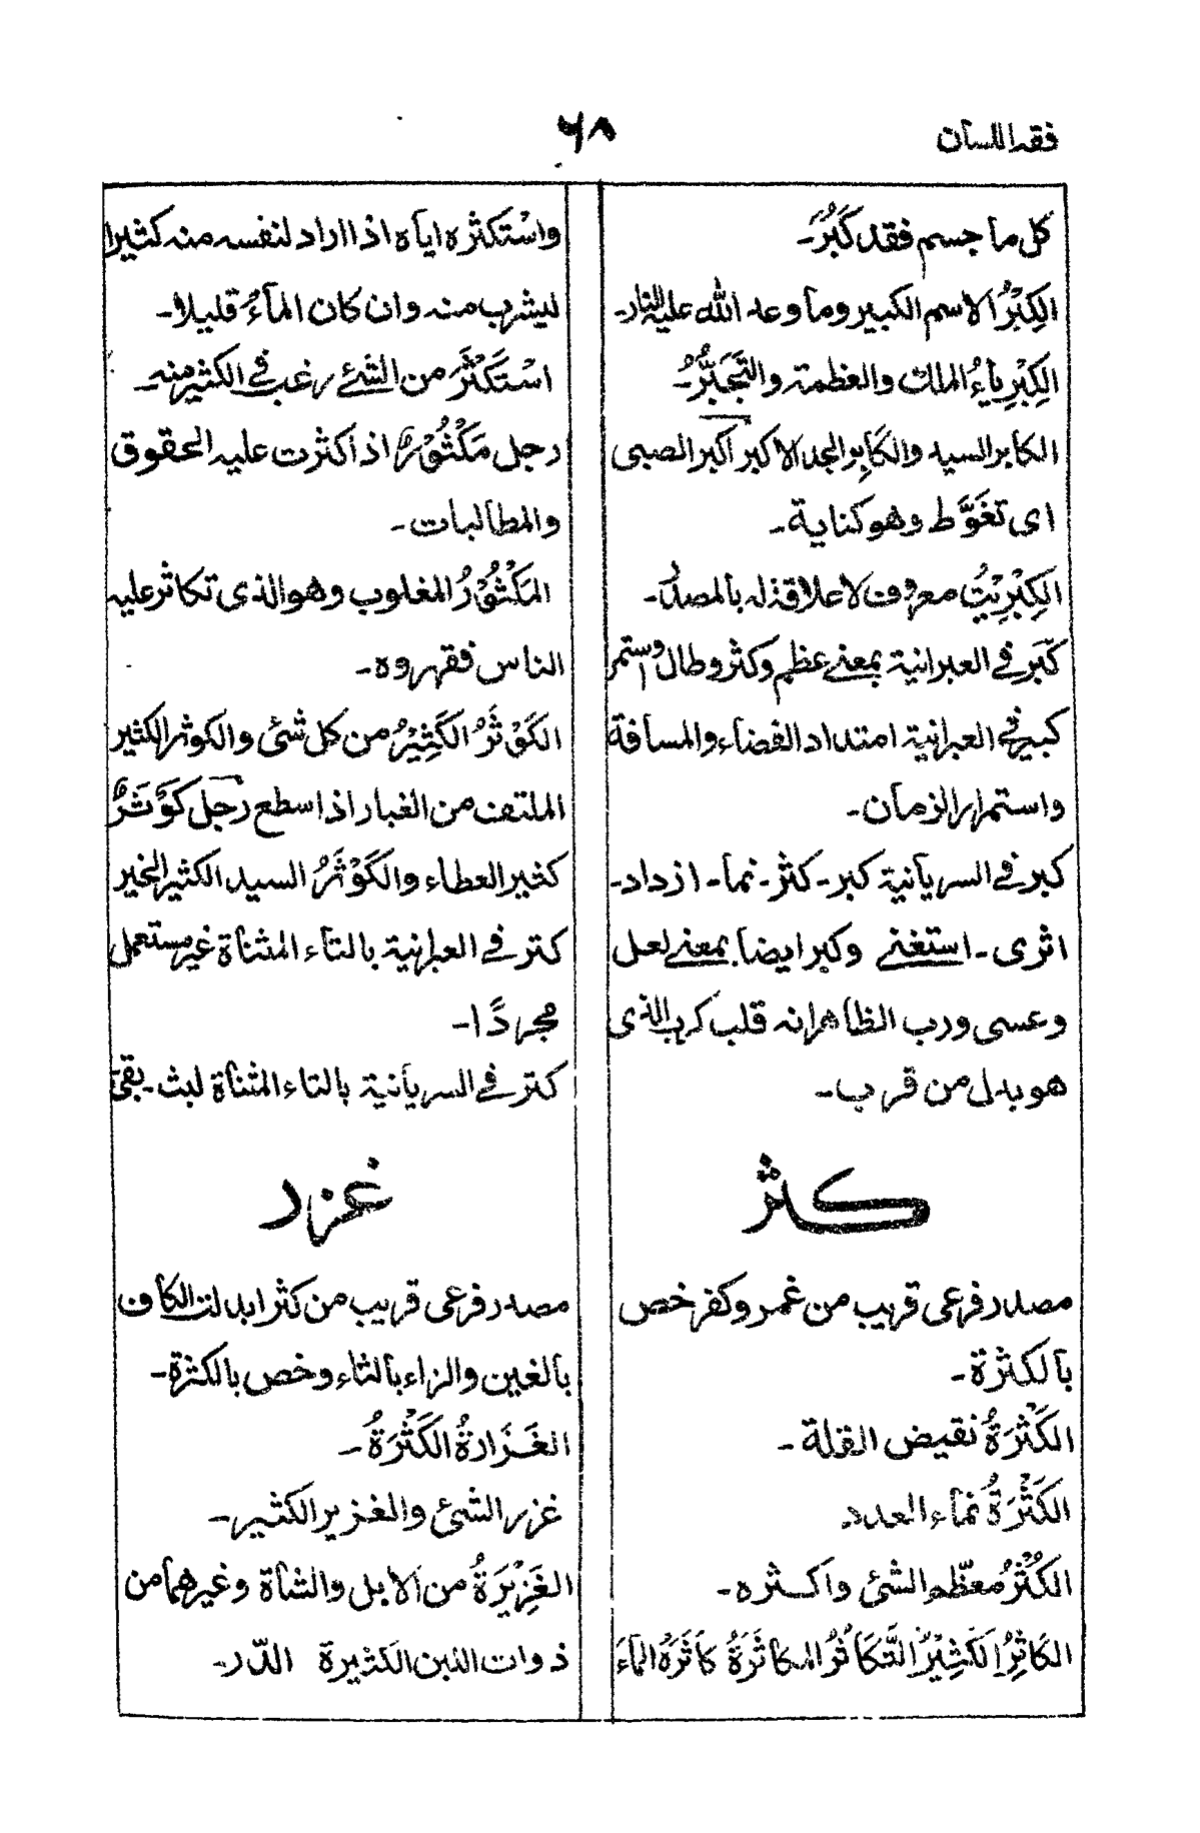 فقه اللسان
٦٨
كل ما جسم فقد كَبُرَ۔
الكِبْرُ الاسم الكبير وما وعد الله عليه النار۔
الكِبْرِياءُ الملك والعظمة والتَّجَبُّرُ۔
الكابر السيد والكَابِر الجد الاكبر اكبر الصبى
اى تَغَوَّط وهو كناية۔
الكِبْرِيْتُ معروف لا علاقة له بالمصدر۔
كَبَر فى العبرانية بمعنى عظم وكثر وطال واستمر
كبير فى العبرانية امتداد الفضاء والمسافة
واستمرار الزمان۔
كبر فى السريانية كبر۔ كثر۔ نما۔ ازداد۔
اثرى۔ استغنى وكبر ايضا بمعنى لعل
وعسى ورب الظاهر انه قلب كرب الذى
هو بدل من قرب۔
كثر
مصدر فرعى قريب من غمر وكفر خص
بالكثرة۔
الكَثْرَةُ نقيض القلة۔
الكَثْرَةُ نماء العدد
الكُثْرُ معظم الشئ واكثره۔
الكَاثِرُ الكَثِيْرُ التَّكَاثُرُ المكاثَرَةُ كَاثَرَهُ الماءَ
واسْتكثره اياه اذا اراد لنفسه منه كثيرا
ليشرب منه وان كان الماءُ قليلا۔
اسْتَكْثَرَ من الشئ رغب فى الكثير منه۔
رجل مَكْثُوْرٌ اذا كثرت عليه الحقوق
والمطالبات۔
المَكْثُوْرُ المغلوب وهو الذى تكاثر عليه
الناس فقهروه۔
الكَوْثَرُ الكَثِيْرُ من كل شئ والكوثر الكثير
الملتف من الغبار اذا سطع رجل كَوْثَرٌ
كثير العطاء والكَوْثَرُ السيد الكثير الخير
كتر فى العبرانية بالتاء المثناة غير مستعمل
مجردًا۔
كتر فى السريانية بالتاء المثناة لبث۔ بقى
غزر
مصدر فرعى قريب من كثر ابدلت الكاف
بالغين والزاء بالثاء وخص بالكثرة۔
الغَزَارةُ الكَثْرَةُ۔
غزر الشئ والغزير الكثير۔
الغَزِيْرَةُ من الابل والشاة وغيرهما من
ذوات اللبن الكثيرة الدّر۔